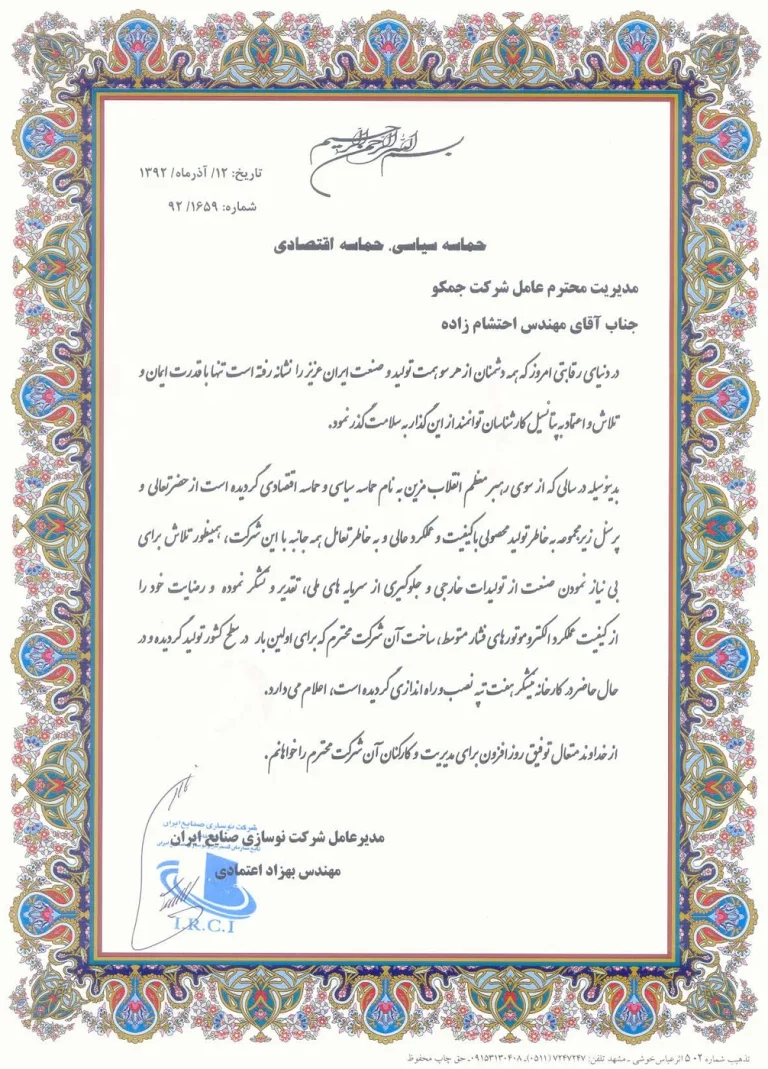 بسم الله الرحمن الرحیم
تاریخ: ۱۲/ آذرماه/ ۱۳۹۲
شماره: ۱۶۵۹/ ۹۲
حماسه سیاسی، حماسه اقتصادی
مدیریت محترم عامل شرکت جمکو
جناب آقای مهندس احتشام زاده
در دنیای رقابتی امروز که همه دشمنان از هر سو همت تولید و صنعت ایران عزیز را نشانه رفته است تنها با قدرت ایمان و
تلاش و اعتماد به پتانسیل کارشناسان توانمند از این گذار به سلامت گذر نمود.
بدینوسیله در سالی که از سوی رهبر معظم انقلاب مزین به نام حماسه سیاسی و حماسه اقتصادی گردیده است از حضرتعالی و
پرسنل زیرمجموعه به خاطر تولید محصولی با کیفیت و عملکرد عالی و به خاطر تعامل همه جانبه با این شرکت، همینطور تلاش برای
بی نیاز نمودن صنعت از تولیدات خارجی و جلوگیری از سرمایه های ملی، تقدیر و تشکر نموده و رضایت خود را
از کیفیت عملکرد الکتروموتورهای فشار متوسط، ساخت آن شرکت محترم که برای اولین بار در سطح کشور تولید گردیده و در
حال حاضر در کارخانه نیشکر هفت تپه نصب و راه اندازی گردیده است، اعلام می دارد.
از خداوند متعال توفیق روزافزون برای مدیریت و کارکنان آن شرکت محترم را خواهانم.
شرکت نوسازی صنایع ایران
مدیرعامل شرکت نوسازی صنایع ایران
مهندس بهزاد اعتمادی
I.R.C.I
تذهیب شماره ۵۰۲ اثر عباس خوشی ـ مشهد تلفن: ۷۲۴۷۲۴۷ (۰۵۱۱)ـ ۰۹۱۵۳۱۳۰۴۰۸ـ حق چاپ محفوظ